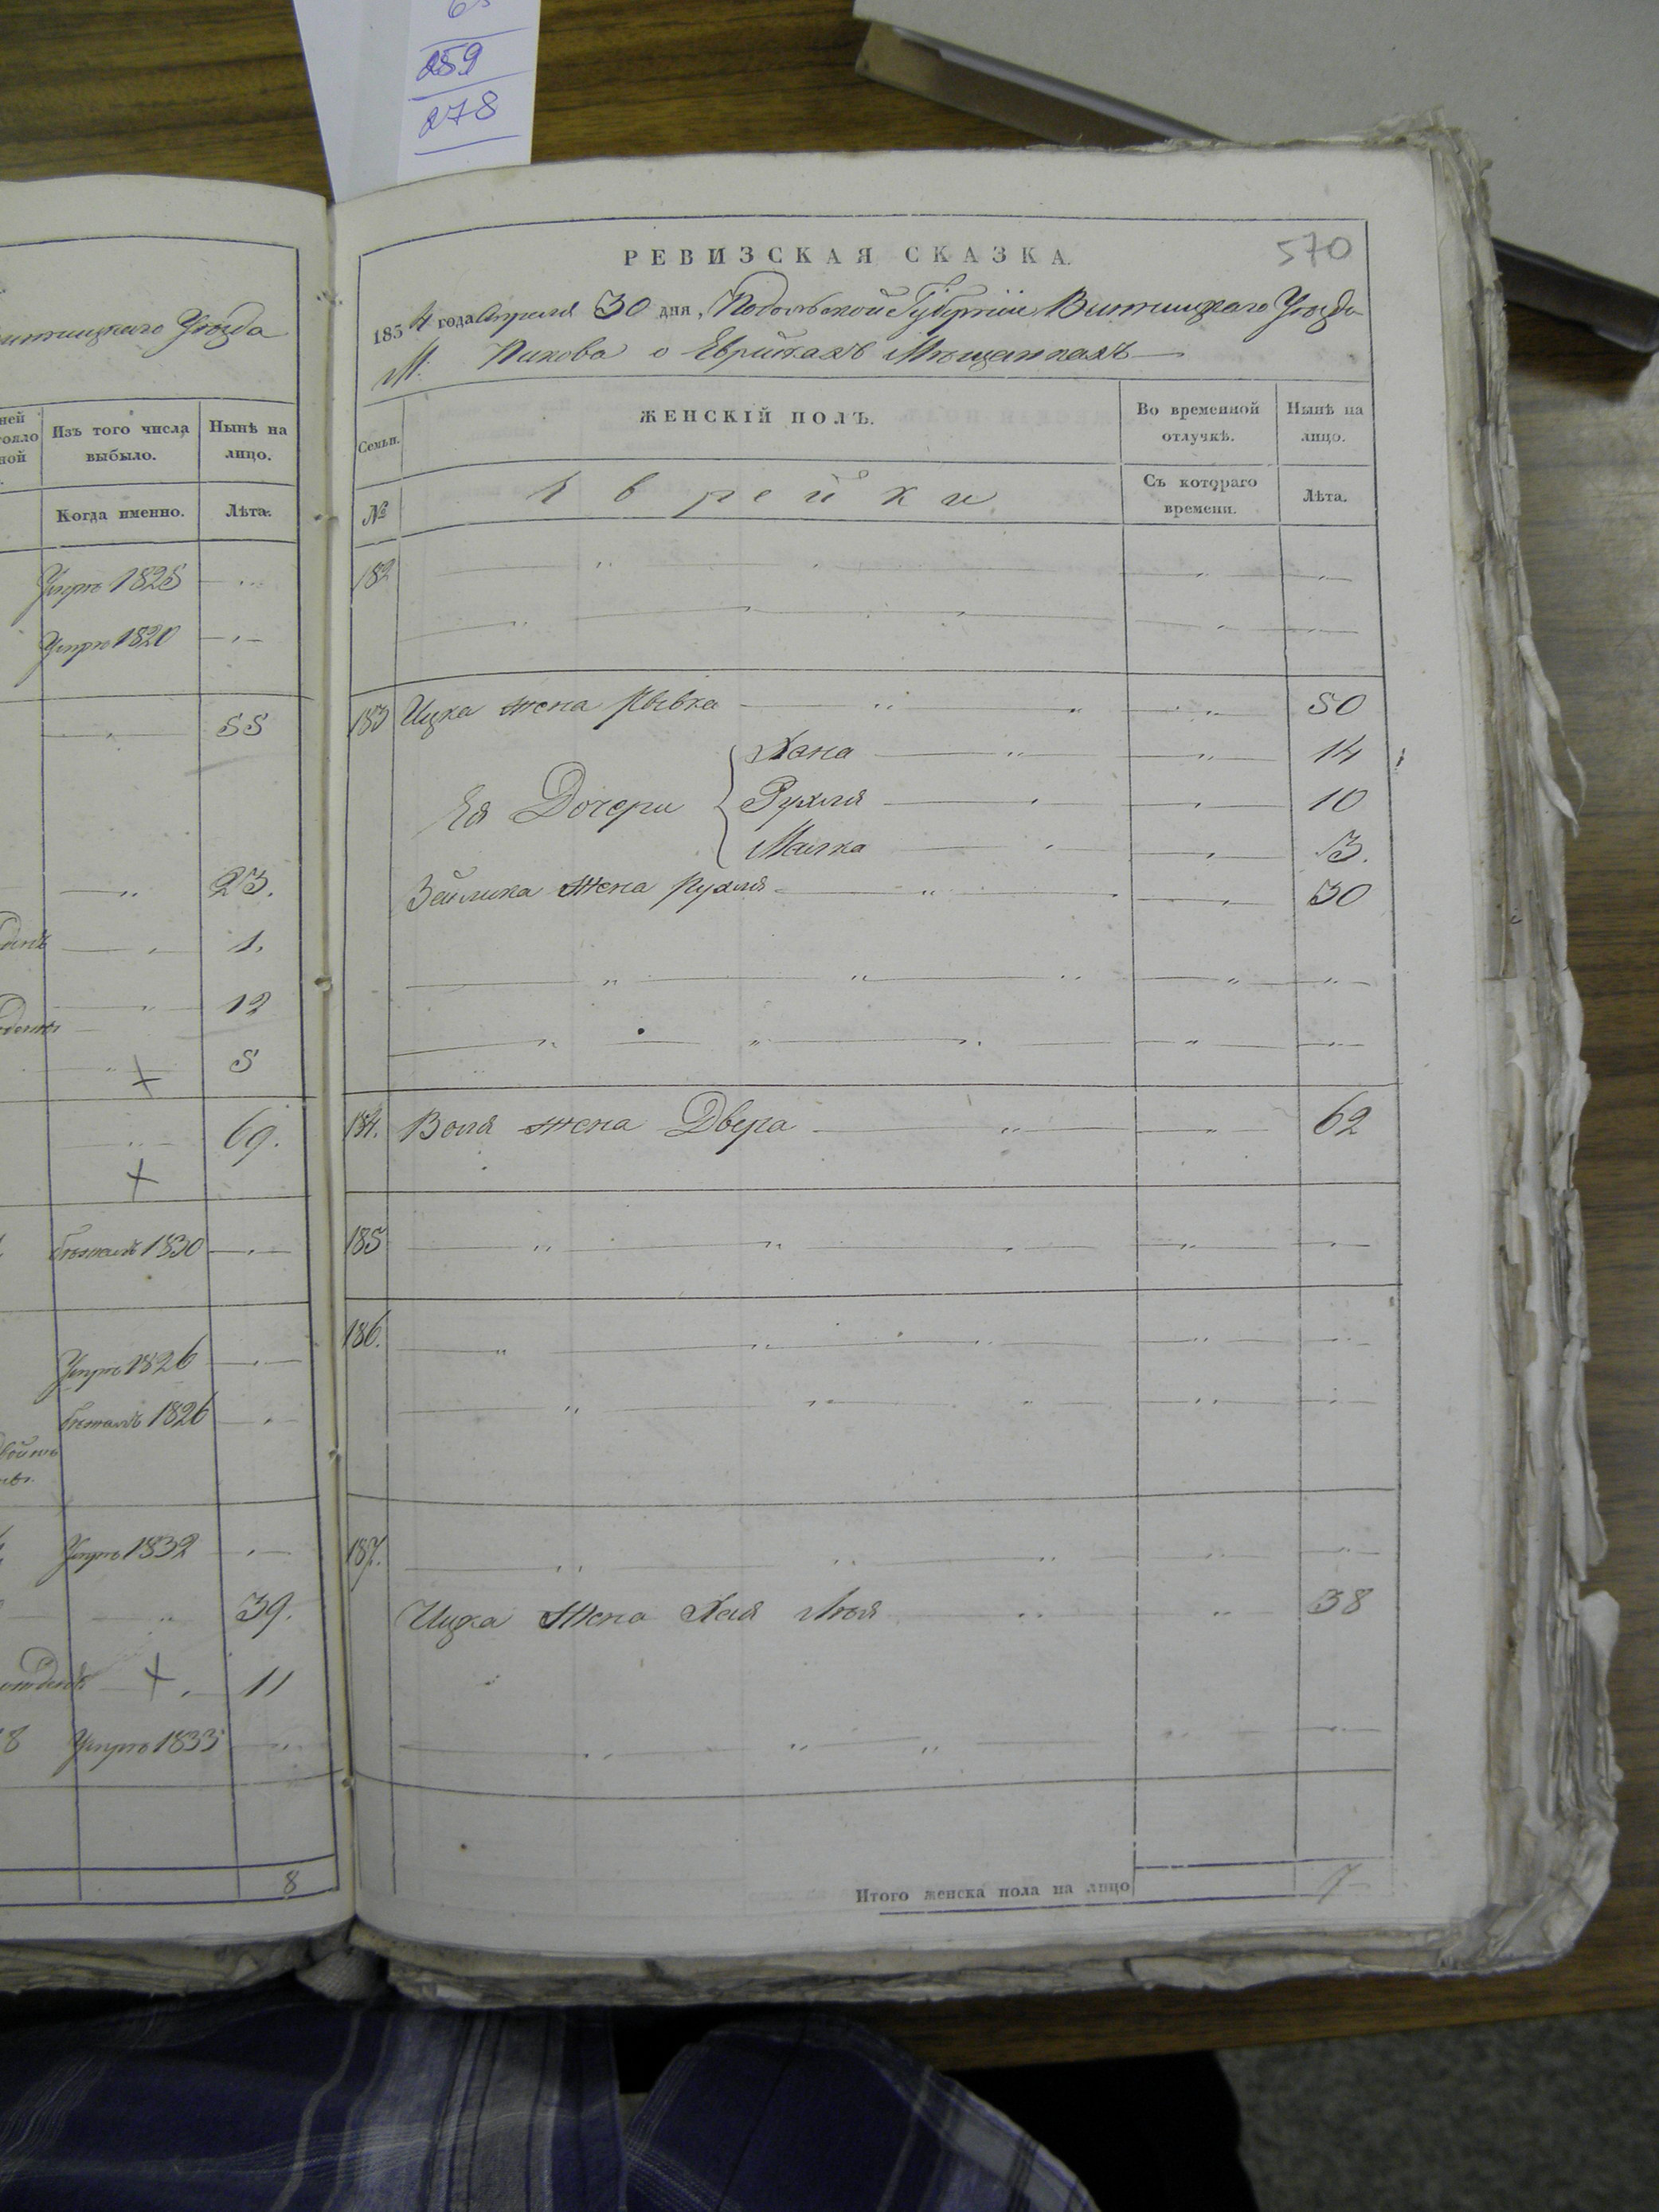 259
278
570
РЕВИЗСКАЯ СКАЗКА.
1834 года Апреля 30 дня, Подольской Губерніи Винницкаго Уезда
М. Пикова о Еврейкахъ Мещанкахъ
Семьи. ЖЕНСКІЙ ПОЛЪ. Во временной отлучкѣ. Нынѣ на лицо.
№ Еврейки Съ котораго времени. Лѣта.
182
183 Ицка жена Рывка 50
Ея Дочери Хана 14
Рухля 10
Малка 3.
Зейлика жена Рухля 30
184. Воля жена Двера 62
185
186.
187.
Ицка жена Хая Лея 38
Итого женска пола на лицо 7
Винницкаго Уезда
Изъ того числа выбыло. Нынѣ на лицо.
Когда именно. Лѣта.
Умре 1825
Умре 1820
55
23.
1.
12
5
69.
бежалъ 1830
Умре 1826
бежалъ 1826
Умре 1832
39.
11
8 Умре 1833
8